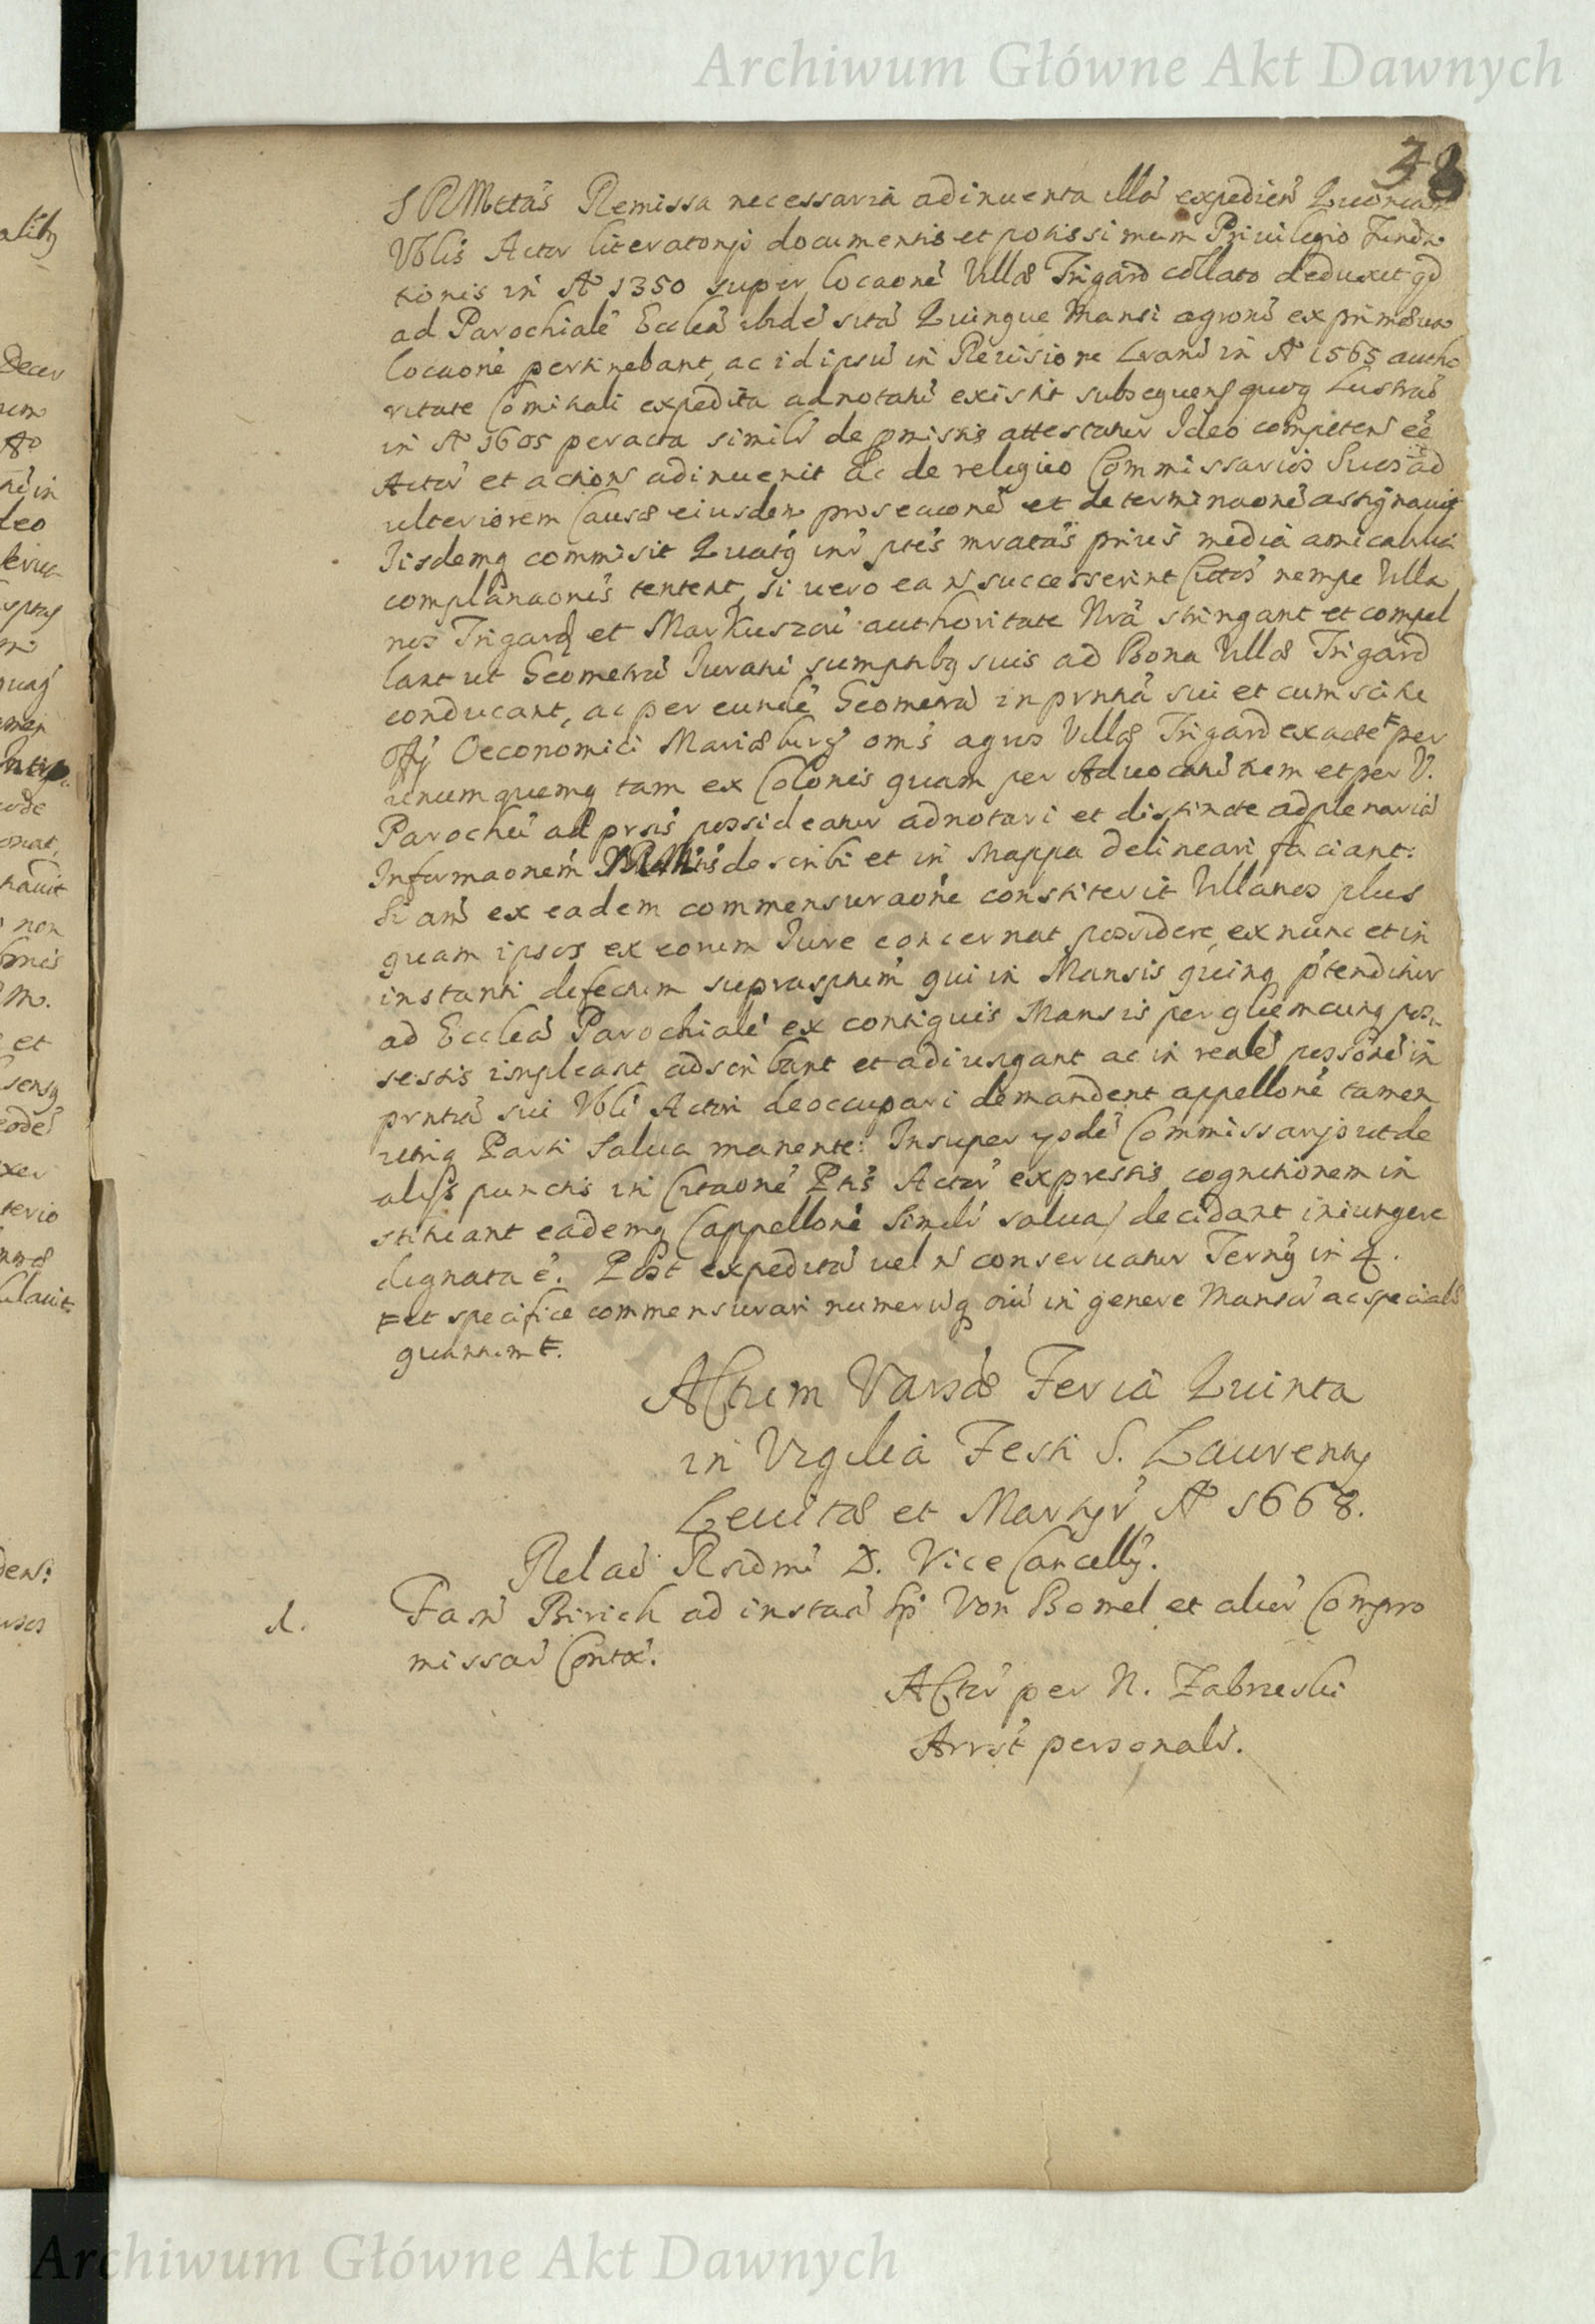 Archiwum Główne Akt Dawnych
38
S R Mttas Remissa necessaria adinventa illa expedien Quoniam
Vblis Actor literatorijs documentis et potissimum Privilegio Funda
tionis in Ao 1350 super locaone Villæ Trigard collato deduxit qd
ad Parochiale Ecclea ibide sita Quinque Mansi agroru ex primæva
locaone pertinebant, ac id ipsu in Revisione in Ao 1565 autho
ritate Comitiali expedita adnotatu existit subsequens quoq Lustrao
in Ao 1605 peracta simili de pmissis attestatur Ideo competen ee
Actor et action adinvenit Ac de religuo Commissarios Suos ad
ulteriorem Causæ eiusdem prosecuone et determinaone assignavit
Iisdemq commisit Quatg inr ptes mratas prius media amicabilis
complanaonis tentent, si vero ea n successerint Cittos nempe Villa
nos Trigard et Markuszow authoritate Nra stringant et compel
lant ut Geometra Iurati sumptibq suis ad Bona Villæ Trigard
conducant, ac per eunde Geometra in prntia sui et cum scitu
Offij Oeconomici Mariæburg oms agros Villæ Trigard exacte per
unumquemq tam ex Colonis quam per Advocatu tum et per V.
Parochu ad prns possideatur adnotari et distincte ad plenaria
Informaonem describi et in Mappa delineari faciant:
Si au ex eadem commensuraone constiterit Villanos plus
quam ipsos ex eorum Iure concernat possidere, ex nunc et in
instanti defectum suprascptum qui in Mansis quing ptenditur
ad Ecclea Parochiale ex contiguis Mansis per qlemcunq pos
sessis impleant adscribant et adiungant ac in reale possone in
prntia sui Vbli Actori deoccupari demandent appellone tamen
utriq Parti salva manente: Insuper ysde Commissarijs ut de
alijs punctis in Citaone Ptis Actor expressis cognitionem in
stituant eademq (appellone simili salva) decidant iniungere
dignata e. Post expedita vel n conservatur Terng in 4.
et specifice commensurari numerusq oiu in genere Mansor ac speciali
quantum
Actum Varsæ Feria Quinta
in Vigilia Festi S. Laurentij
Levitæ et Martyr Ao 1668.
Relao Rsidmi D. Vice Cancellij.
1. Birich ad instaa Von Bomel et alior Compro
missar Conta.
Actor per N. Zabrzeski
Arrst personali.
Archiwum Główne Akt Dawnych